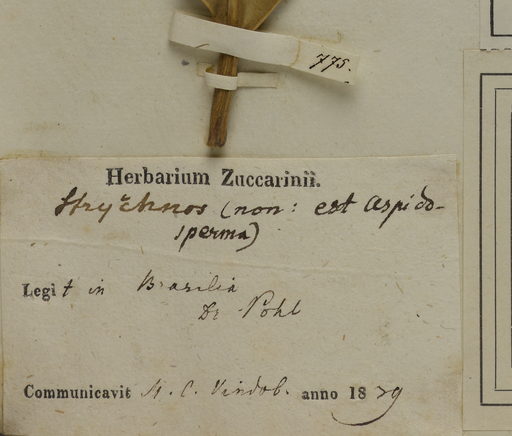 775.
Herbarium Zuccarinii.
Strychnos (non: est Aspido-
sperma)
Legit in Brasilia
Dr Pohl
Communicavit M. C. Vindob. anno 1839